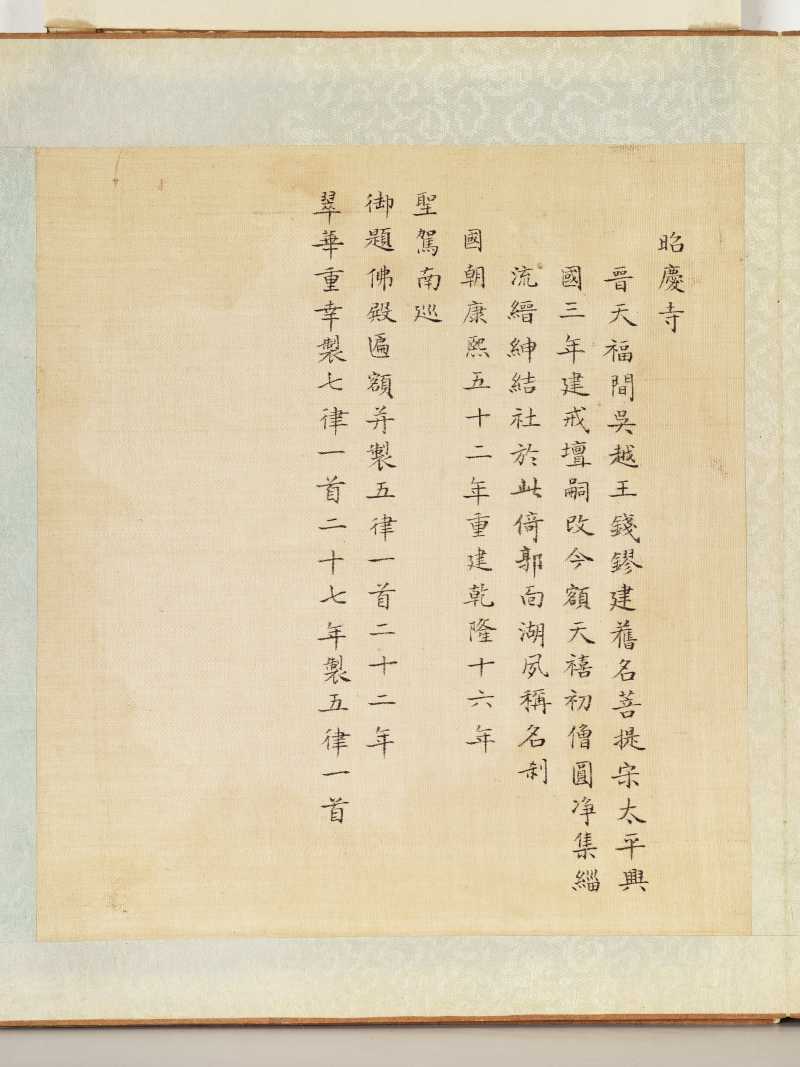 昭慶寺
晉天福間吳越王錢鏐建舊名菩提宋太平興
國三年建戒壇嗣改今額天禧初僧圓淨集緇
流縉紳結社於此倚郭面湖夙稱名刹
國朝康熙五十二年重建乾隆十六年
聖駕南巡
御題佛殿匾額并製五律一首二十二年
翠華重幸製七律一首二十七年製五律一首